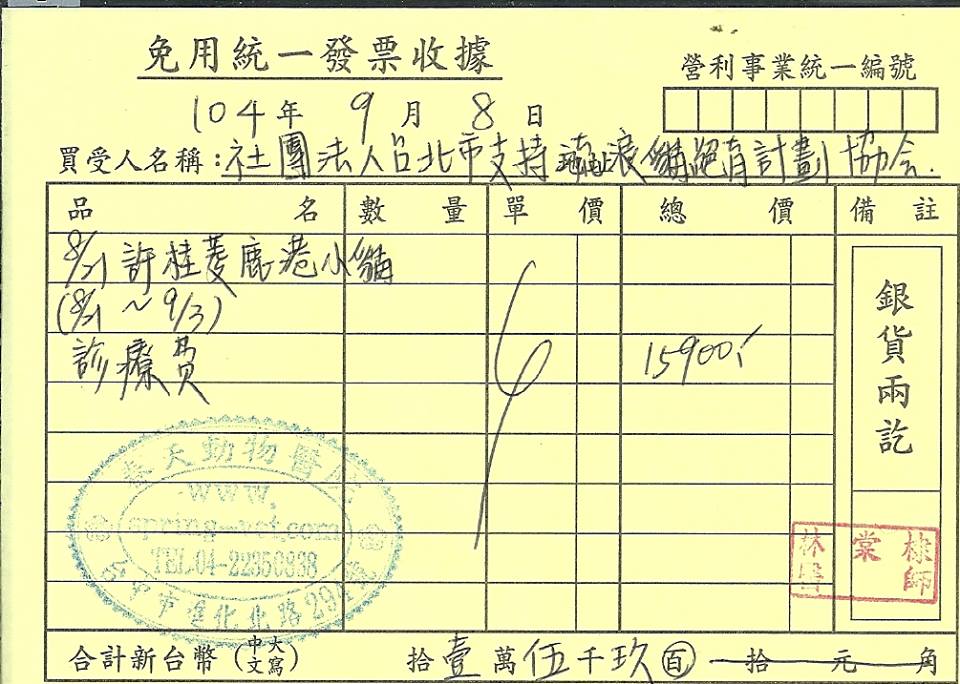 免用統一發票收據
營利事業統一編號
104年 9月 8日
買受人名稱:社團法人台北市支持流浪貓絕育計劃協会.
品名 數量 單價 總價 備註
8/21許桂菱鹿港小貓
(8/21~9/3)
診療費 15900
銀貨兩訖
春天動物醫院
www.
spring-vet.com
TEL.04-22350838
台中市進化北路294號
林棠棣
醫師
合計新台幣(中文大寫) 拾壹萬伍千玖百 拾 元 角